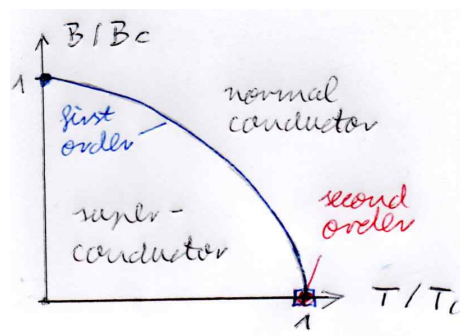 B/Bc
1
first
order
normal
conductor
super-
conductor
second
order
T/Tc
1